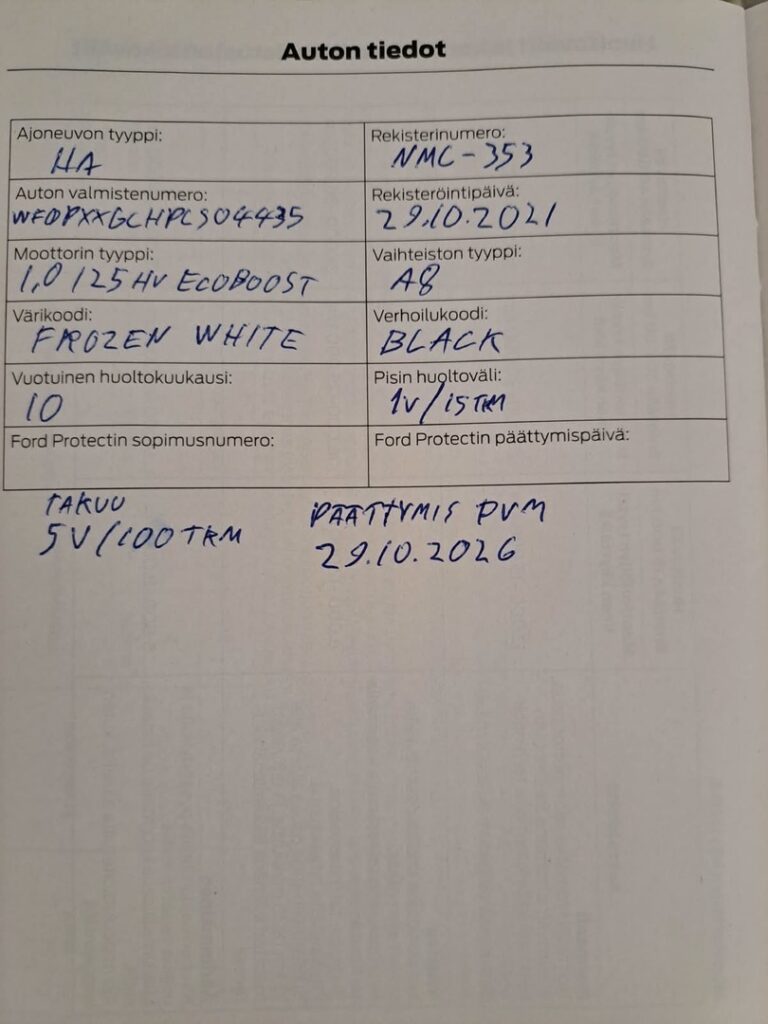 Auton tiedot
Ajoneuvon tyyppi:
HA
Rekisterinumero:
NMC-353
Auton valmistenumero:
WF0PXXGCHPLS04435
Rekisteröintipäivä:
29.10.2021
Moottorin tyyppi:
1,0 125 HV ECOBOOST
Vaihteiston tyyppi:
A8
Värikoodi:
FROZEN WHITE
Verhoilukoodi:
BLACK
Vuotuinen huoltokuukausi:
10
Pisin huoltoväli:
1V/15TKM
Ford Protectin sopimusnumero:
Ford Protectin päättymispäivä:
TAKUU
5V/100TKM
PÄÄTTYMIS PVM
29.10.2026